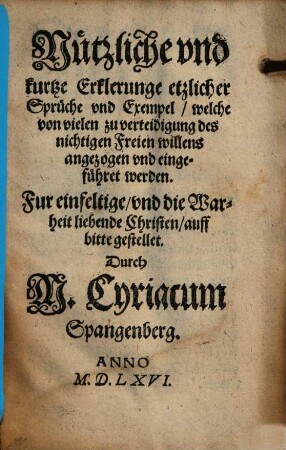 Nützliche vnd
kurtze Erklerunge etzlicher
Sprüche vnd Exempel / welche
von vielen zu verteidigung des
nichtigen Freien willens
angezogen vnd einge-
führet werden.
Fur einfeltige / vnd die War-
heit liebende Christen / auff
bitte gestellet.
Durch
M. Cyriacum
Spangenberg.
ANNO
M. D. LXVI.